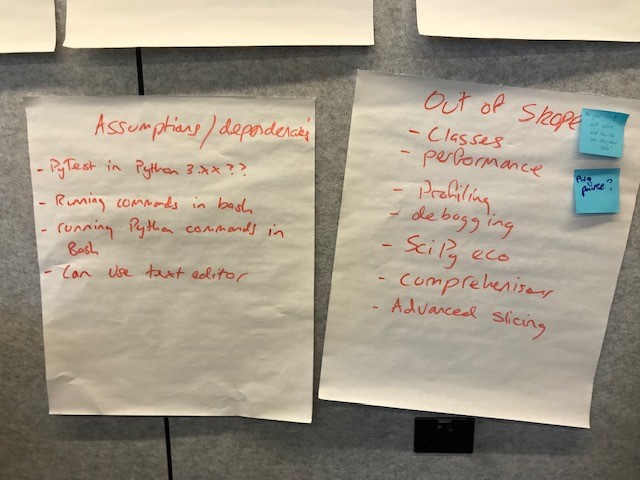 Assumptions/dependencies
- PyTest in Python 3.xx??
- Running commands in bash
- running Python commands in
Bash
- Can use text editor
Out of Skope
- Classes
- performance
- Profiling
- debogging
- SciPy eco
- comprehenisons
- Advanced slicing